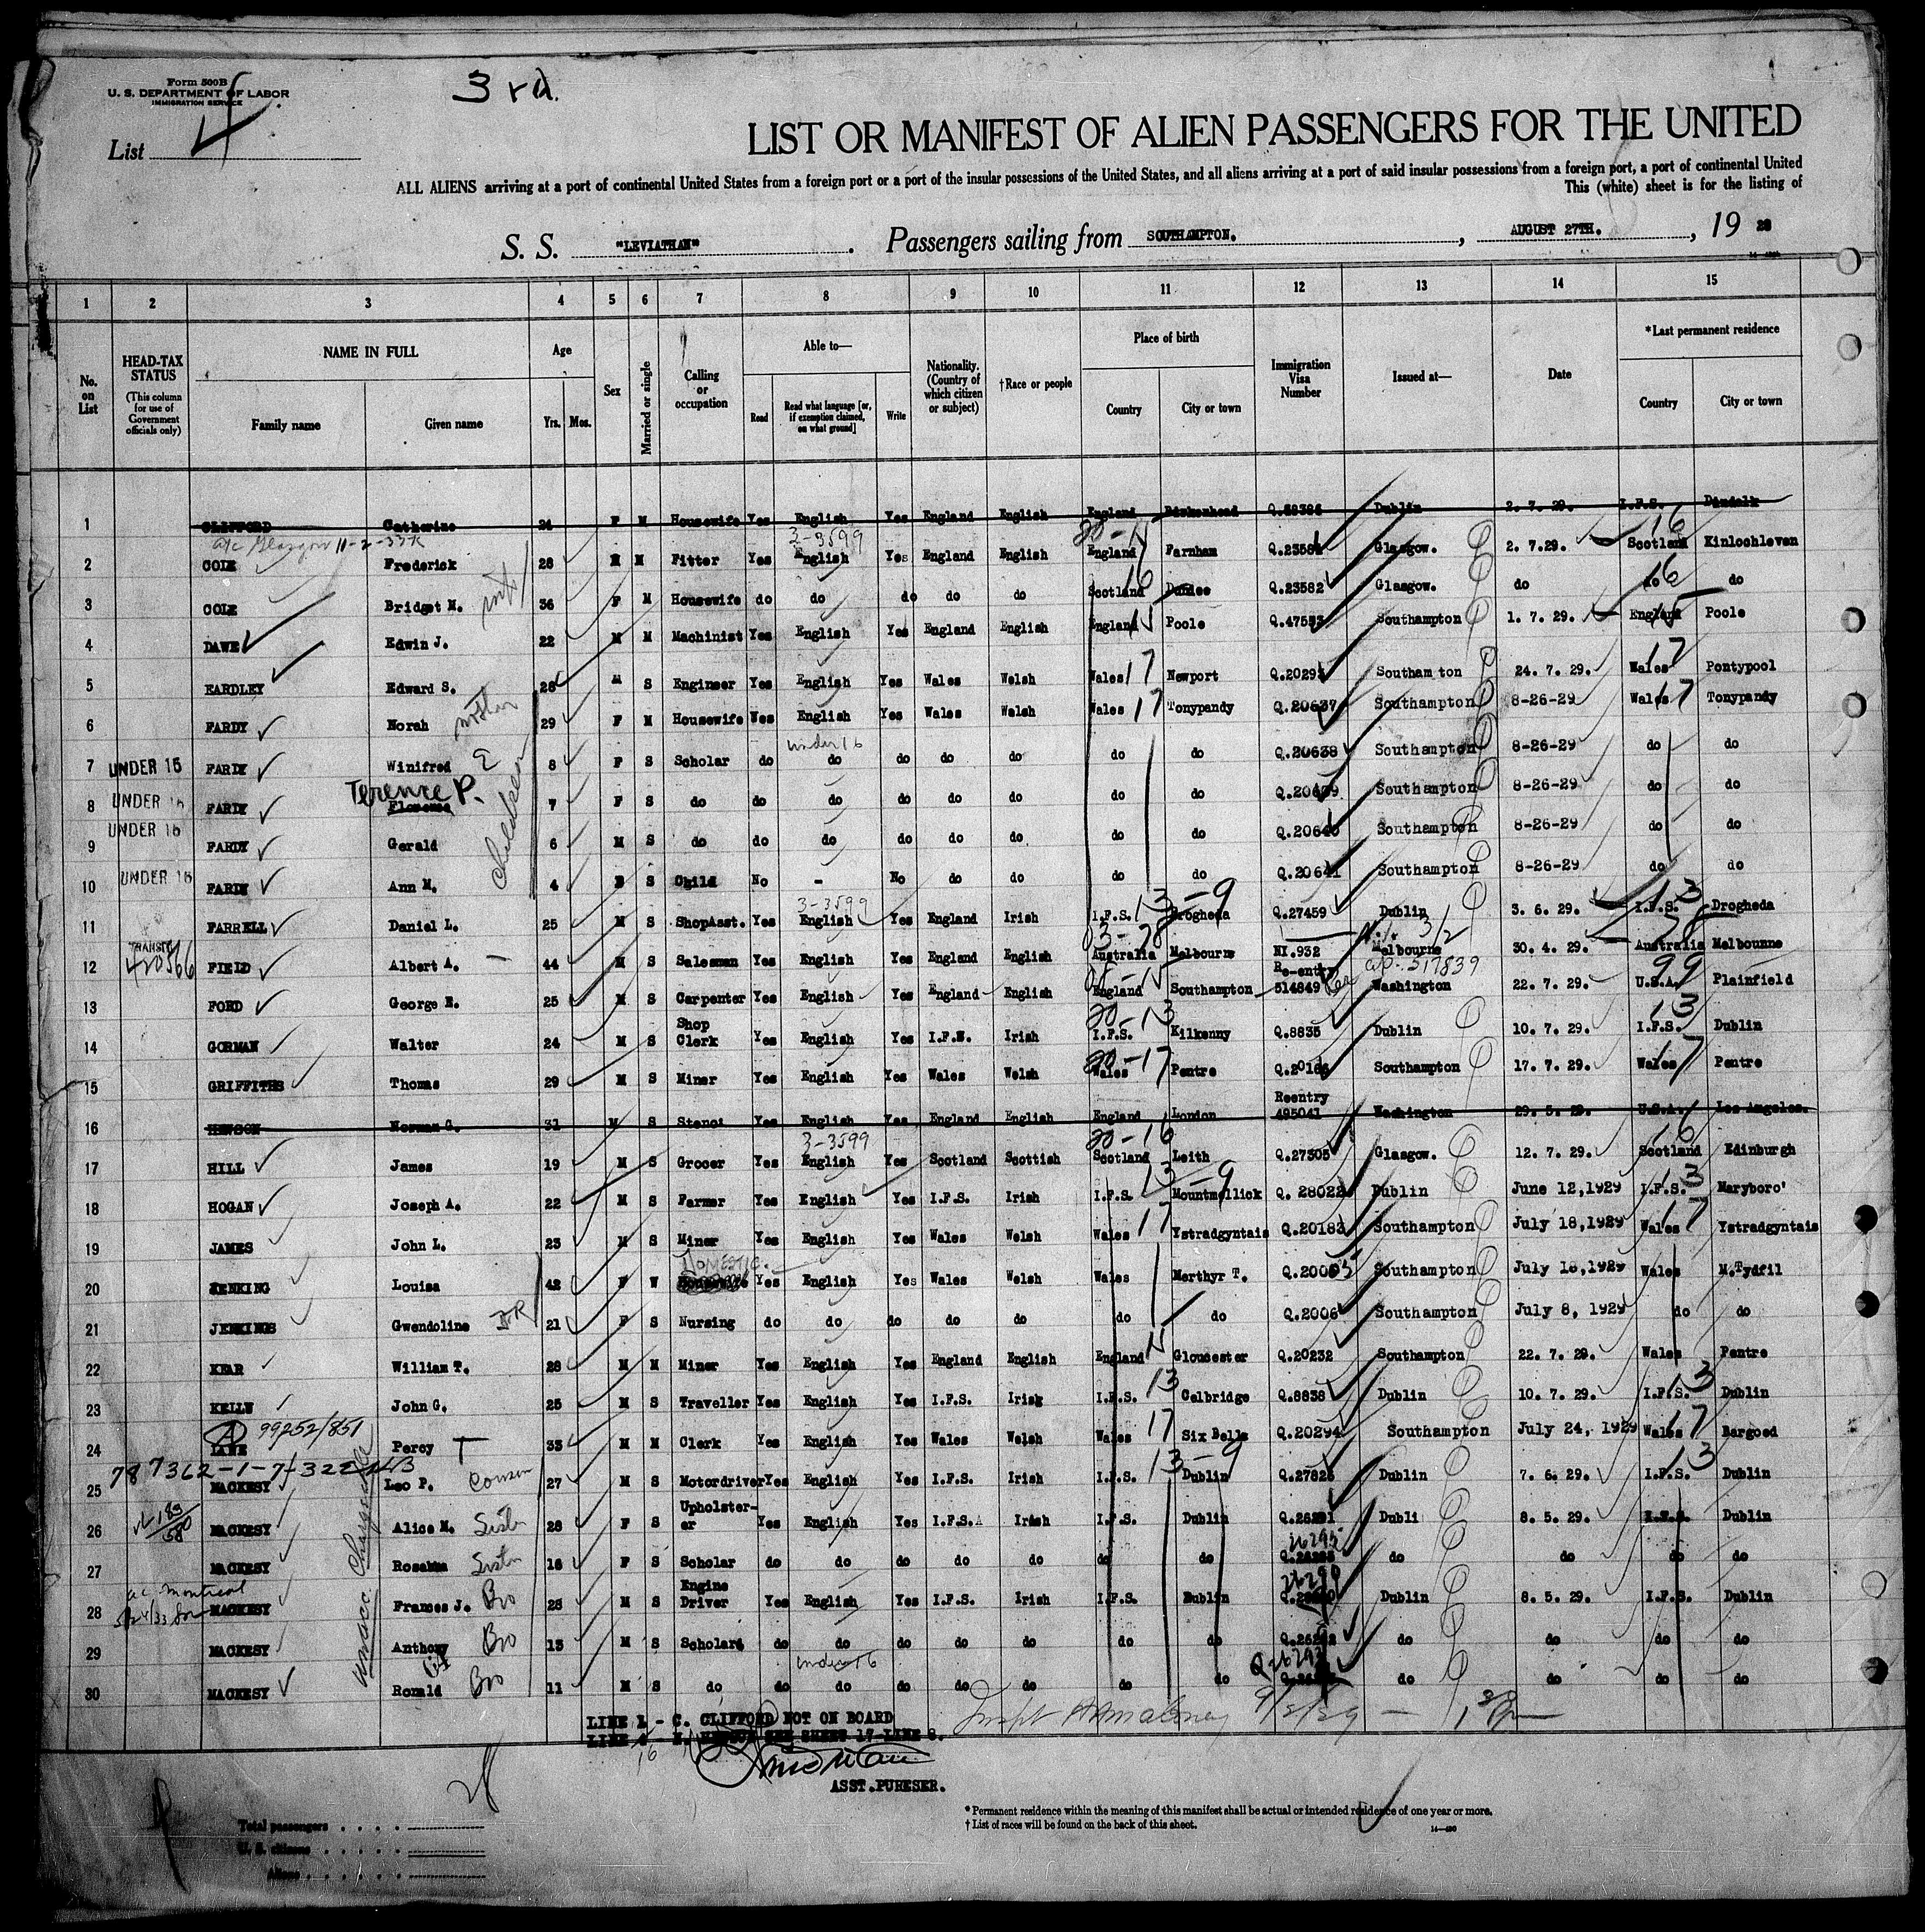 Form 500B
U. S. DEPARTMENT OF LABOR
IMMIGRATION SERVICE
3rd.
List 4
LIST OR MANIFEST OF ALIEN PASSENGERS FOR THE UNITED
ALL ALIENS arriving at a port of continental United States from a foreign port or a port of the insular possessions of the United States, and all aliens arriving at a port of said insular possessions from a foreign port, a port of continental United
This (white) sheet is for the listing of
S. S. "LEVIATHAN". Passengers sailing from SOUTHAMPTON., AUGUST 27TH., 19 29
1 2 3 4 5 6 7 8 9 10 11 12 13 14 15
No. on List
HEAD-TAX STATUS (This column for use of Government officials only)
NAME IN FULL Family name Given name
Age Yrs. Mos.
Sex
Married or single
Calling or occupation
Able to— Read Read what language [or, if exemption claimed, on what ground] Write
Nationality. (Country of which citizen or subject)
†Race or people
Place of birth Country City or town
Immigration Visa Number
Issued at—
Date
*Last permanent residence Country City or town
1 CLIFFORD Catherine F M Housewife Yes English Yes England English England Birkenhead Dublin 2. 7. 29. I.F.S. Dundalk
a/c Glasgow 11-2-33 3-3599 16
2 COLE Frederick 28 M M Fitter Yes English Yes England English England Farnham Glasgow. 2. 7.29. Scotland Kinlochleven
3 COLE Bridget M. 36 F M Housewife do do do do do Scotland 16 Dundee Q.23582 Glasgow. do do 16 do
4 DAWE Edwin J. 22 M M Machinist Yes English Yes England English England Poole Southampton 1. 7. 29. England Poole
5 EARDLEY Edward S. 25 M S Engineer Yes English Yes Wales Welsh Wales 17 Newport Southam ton 24. 7. 29. Wales 17 Pontypool
6 FARDY Norah mother 29 F M Housewife Yes English Yes Wales Welsh Wales 17 Tonypandy Q.20637 Southampton 8-26-29 Wales 17 Tonypandy
under 16
7 UNDER 16 FARDY Winifred E 8 F S Scholar do do do do do do do Q.20638 Southampton 8-26-29 do do
Terence P. children
8 UNDER 16 FARDY Florence 7 F S do do do do do do do do Q.20639 Southampton 8-26-29 do do
9 UNDER 16 FARDY Gerald 6 M S do do do do do do do do Q.20640 Southampton 8-26-29 do do
10 UNDER 16 FARDY Ann M. 4 S Child No - No do do do do Q.20641 Southampton 8-26-29 do do
3-3599
11 FARRELL Daniel L. 25 M S ShopAsst. Yes English Yes England Irish I.F.S. 13-9 Drogheda Q.27459 Dublin 3. 6. 29. I.F.S. 13 Drogheda
12 TRANSIT FIELD Albert A. 44 M S Salesman Yes English Yes England English Australia Melbourne NI.932 Melbourne 30. 4. 29. Australia Melbourne
13 FORD George E. 25 M S Carpenter Yes English Yes England English England Southampton Re-entry 514849 Washington 22. 7. 29. U.S.A. 99 Plainfield
14 GORMAN Walter 24 M S Shop Clerk Yes English Yes I.F.S. Irish I.F.S. 20-13 Kilkenny Q.8835 Dublin 10. 7. 29. I.F.S. 13 Dublin
15 GRIFFITHS Thomas 29 M S Miner Yes English Yes Wales Welsh Wales 20-17 Pentre Southampton 17. 7. 29. Wales 17 Pentre
16 HEWSON Norman G. 31 M S Stenot Yes English Yes England English England London Reentry 495041 Washington 29. 5. 29. U.S.A. Los Angeles.
3-3599 20-16 16
17 HILL James 19 M S Grocer Yes English Yes Scotland Scottish Scotland Leith Q.27305 Glasgow. 12. 7. 29. Scotland Edinburgh
18 HOGAN Joseph A. 22 M S Farmer Yes English Yes I.F.S. Irish I.F.S. 13-9 Mountmellick Q. 28022 Dublin June 12,1929 I.F.S. 13 Maryboro'
19 JAMES John L. 23 M S Miner Yes English Yes Wales Welsh Wales 17 Ystradgyntais Q.20183 Southampton July 18,1929 Wales 17 Ystradgyntais
DOMESTIC.
20 JENKINS Louisa 42 F W Housewife Yes English Yes Wales Welsh Wales Merthyr T. Southampton July 18,1929 Wales M.Tydfil
21 JENKINS Gwendoline 21 F S Nursing do do do do do do do Q.2006 Southampton July 8, 1929 do do
22 KEAR William T. 28 M M Miner Yes English Yes England English England Gloucester Q.20232 Southampton 22. 7. 29. Wales Pentre
23 KELLY John G. 25 M S Traveller Yes English Yes I.F.S. Irish I.F.S. 13 Celbridge Q.8838 Dublin 10. 7. 29. I.F.S. 13 Dublin
99252/851
24 LANE Percy T 33 M M Clerk Yes English Yes Wales Welsh Wales 17 Six Bells Q.20294 Southampton July 24, 1929 Wales 17 Bargoed
25 MACKESY Leo P. Cousin 27 M S Motordriver Yes English Yes I.F.S. Irish I.F.S. 13-9 Dublin Dublin 7. 6. 29. I.F.S. 13 Dublin
26 MACKESY Alice M. Sister 28 F S Upholster-er Yes English Yes I.F.S. Irish I.F.S. Dublin Q.26291 Dubli 8. 5. 29. I.F.S. Dublin
27 MACKESY Rosanna Sister 16 F S Scholar do do do do do do do 26295 do do do do
ac montreal
28 MACKESY Frances J. Bro 25 M S Engine Driver Yes English Yes I.F.S. Irish I.F.S. Dublin 26290 Dublin 8. 5. 29. I.F.S. Dublin
29 MACKESY Anthony Bro 13 M S Scholar do do do do do do do do do do do
under 16
30 MACKESY Ronald Bro 11 M S do do do do do do do do do do do do
LINE 1 - C. CLIFFORD NOT ON BOARD
LINE 16 - N. HEWSON SEE SHEET 17 LINE 8.
9/2/29
ASST.PURESER.
*Permanent residence within the meaning of this manifest shall be actual or intended residence of one year or more.
† List of races will be found on the back of this sheet.
Total passengers
U. S. citizens
Aliens